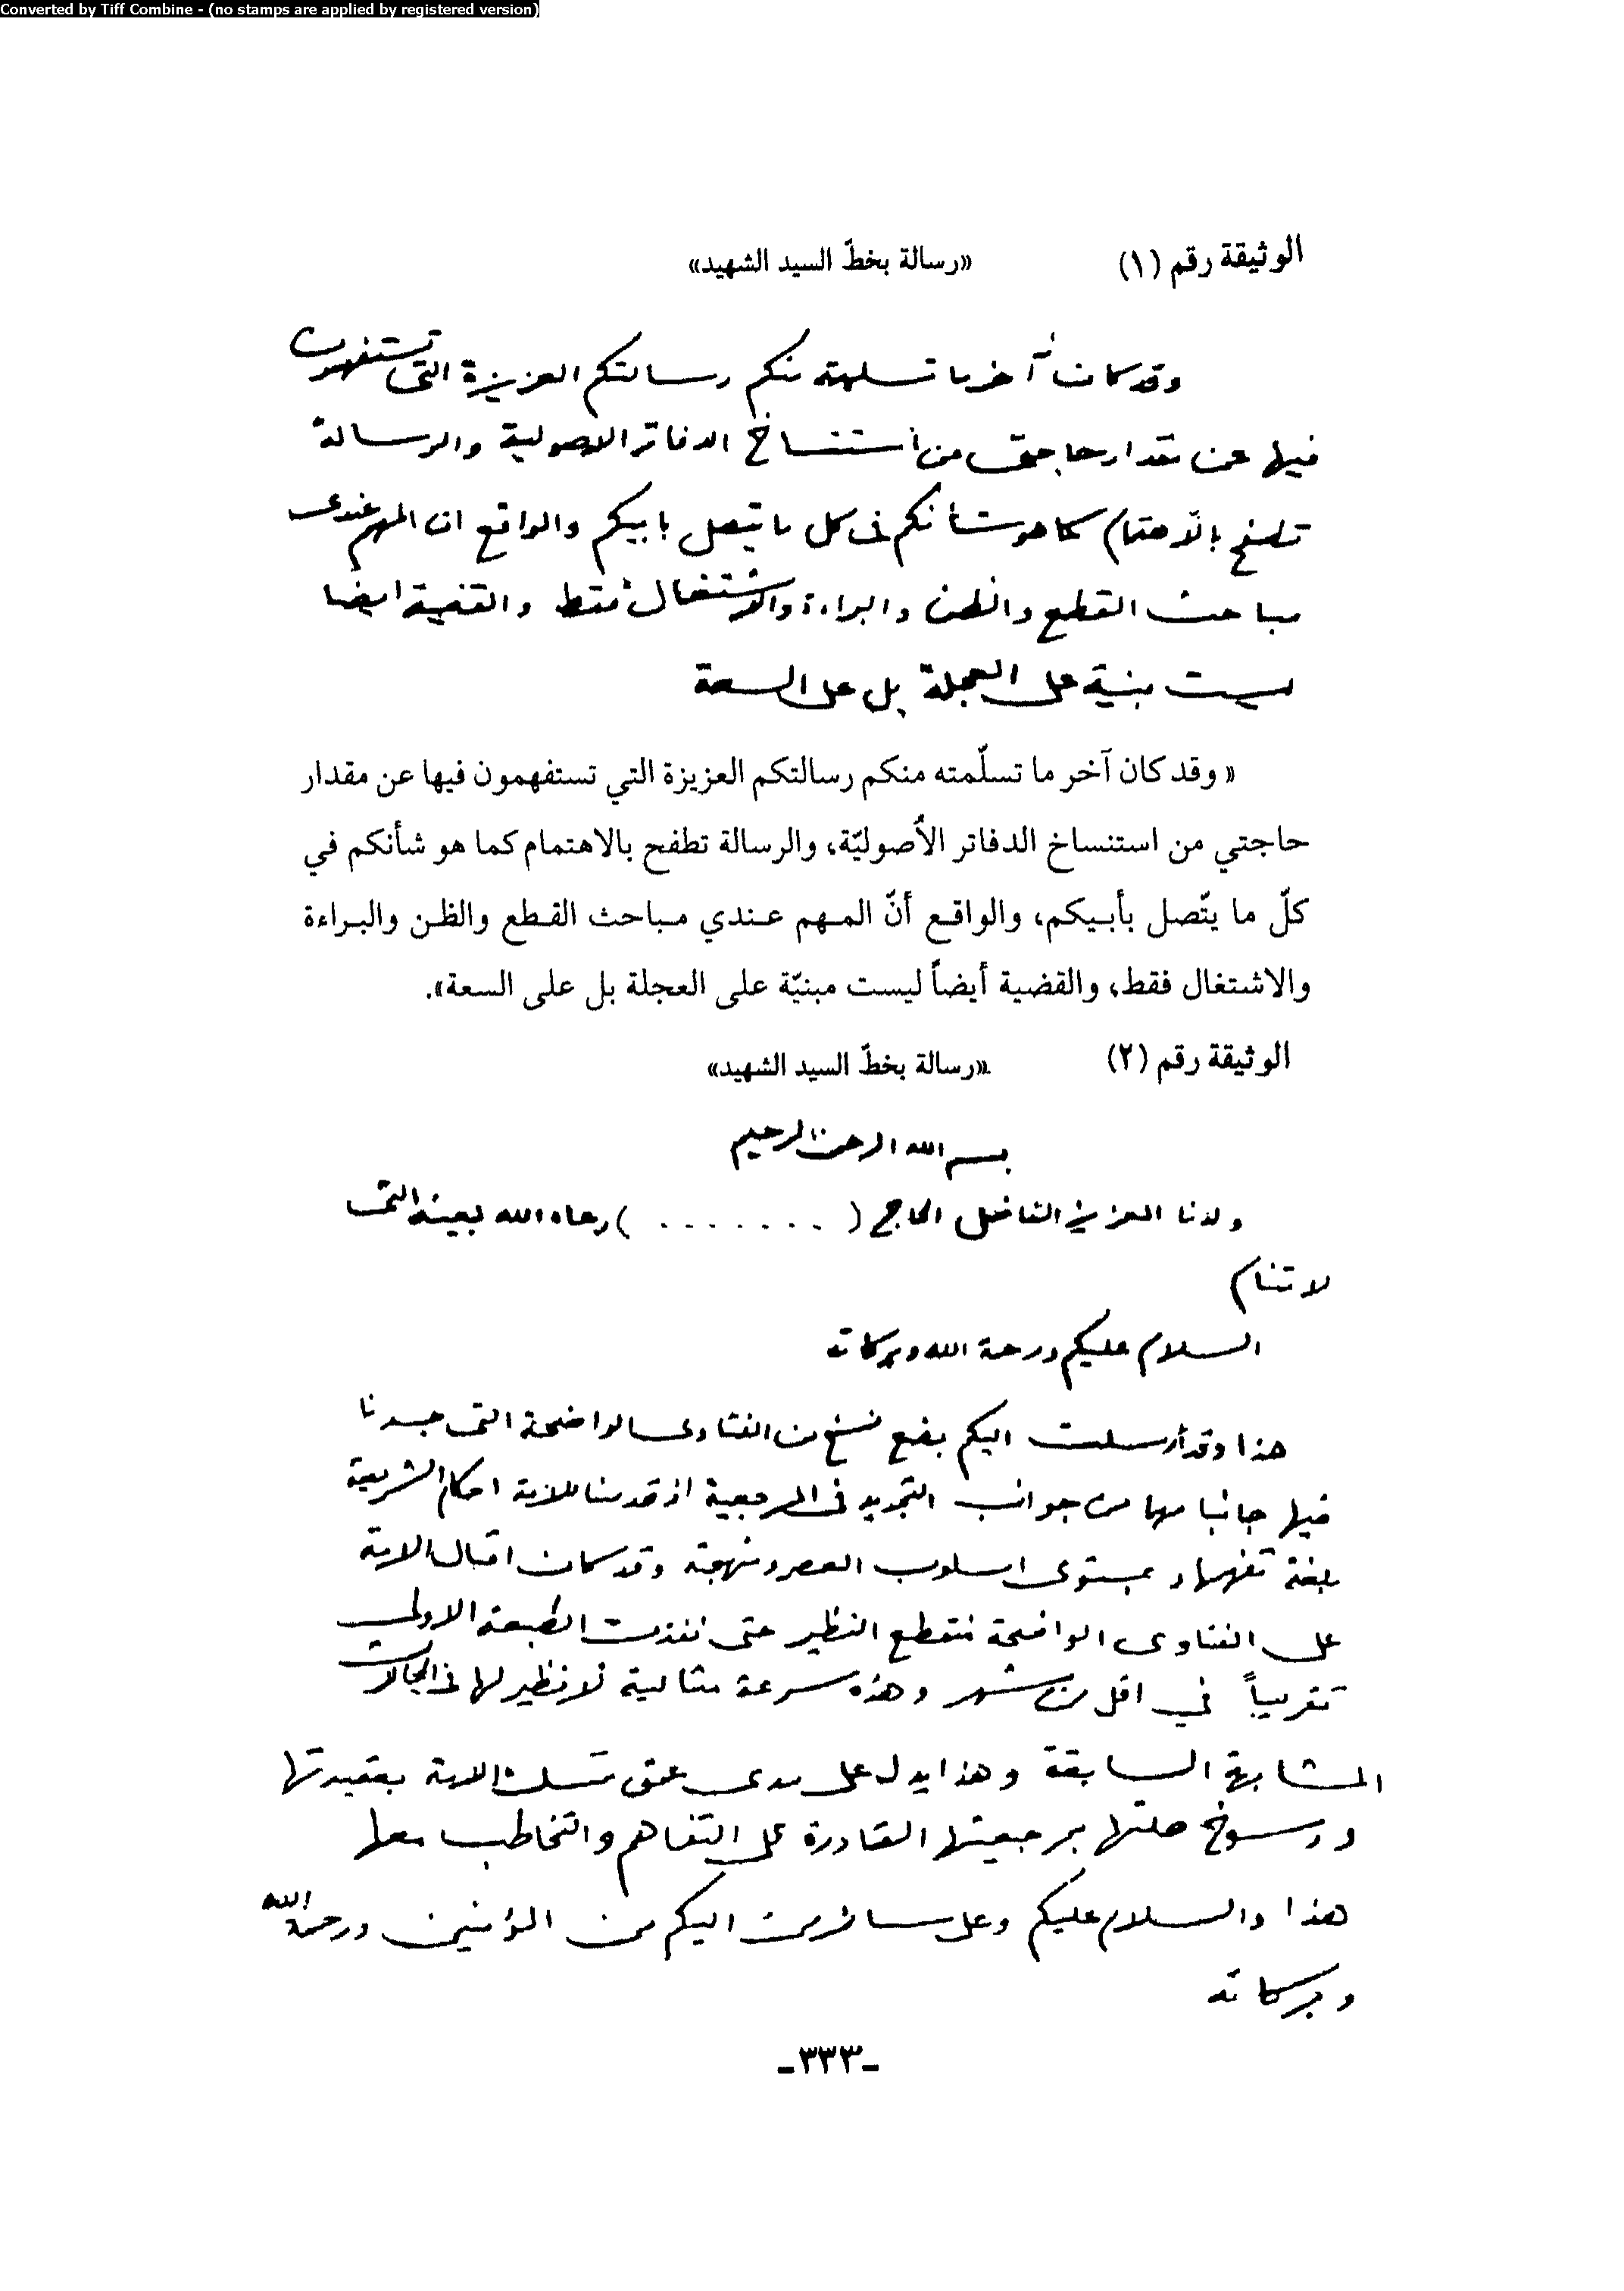 Converted by Tiff Combine - (no stamps are applied by registered version)
الوثيقة رقم (١) «رسالة بخطّ السيد الشهيد»
وقد كان آخر ما تسلمته منكم رسالتكم العزيزة التي تستفهمون
فيها عن مقدار حاجتي من استنساخ الدفاتر الاصولية والرسالة
تطفح بالاهتمام كما هو شأنكم في كل ما يتصل بابيكم والواقع ان المهم عندي
مباحث القطع والظن والبراءة والاشتغال فقط والقضية ايضا
ليست مبنية على العجلة بل على السعة
« وقد كان آخر ما تسلّمته منكم رسالتكم العزيزة التي تستفهمون فيها عن مقدار
حاجتي من استنساخ الدفاتر الأصوليّة، والرسالة تطفح بالاهتمام كما هو شأنكم في
كلّ ما يتّصل بأبيكم، والواقع أنّ المهم عندي مباحث القطع والظن والبراءة
والاشتغال فقط، والقضية أيضاً ليست مبنيّة على العجلة بل على السعة».
الوثيقة رقم (٢) «رسالة بخطّ السيد الشهيد»
بسم الله الرحمن الرحيم
ولدنا العزيز الفاضل الحاج ( . . . . . . . ) رعاه الله بعينه التي
لا تنام
السلام عليكم ورحمة الله وبركاته
هذا وقد أرسلت اليكم بضع نسخ من الفتاوى الواضحة التي جسدنا
فيها جانبا مهما من جوانب التجديد في المرجعية اذ قدمنا للامة احكام الشريعة
بلغة تفهمها وبمستوى اسلوب العصر ومنهجته وقد كان اقبال الامة
على الفتاوى الواضحة منقطع النظير حتى نفذت الطبعة الاولى
تقريباً في اقل من شهر وهذه سرعة مثالية لا نظير لها في المجالات
المشابهة السابقة وهذا يدل على مدى عمق تمسك الامة بعقيدتها
ورسوخ صلتها بمرجعيتها القادرة على التفاهم والتخاطب معها
هذا والسلام عليكم وعلى سائر من اليكم من المؤمنين ورحمة الله
وبركاته
-٣٣٣-